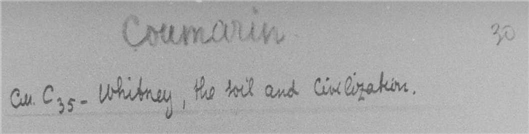 Coumarin. 30
Cu. C35 - Whitney, the soil and Civilization.